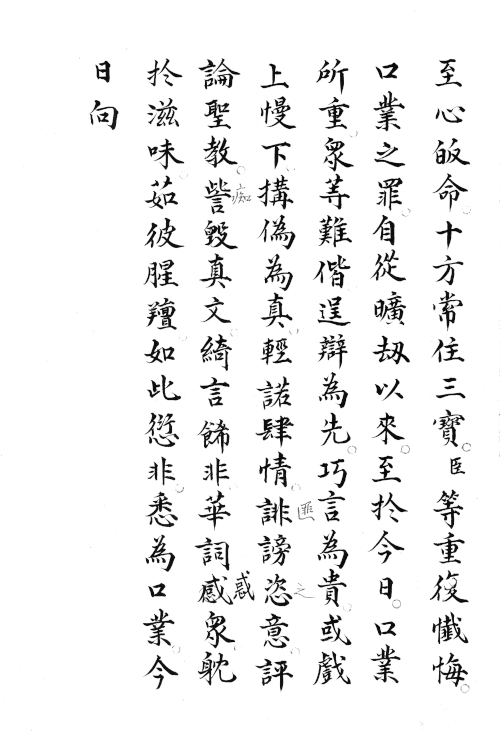 至心皈命十方常住三寶臣等重復懺悔
口業之罪自從曠劫以來至扵今日口業
所重眾等難偕逞辯為先巧言為貴或戲
上慢下搆偽為真輕諾肆情誹謗恣意評
論聖教訾毀真文綺言餙非華詞感眾躭
扵滋味茹彼腥羶如此愆非悉為口業今
日向